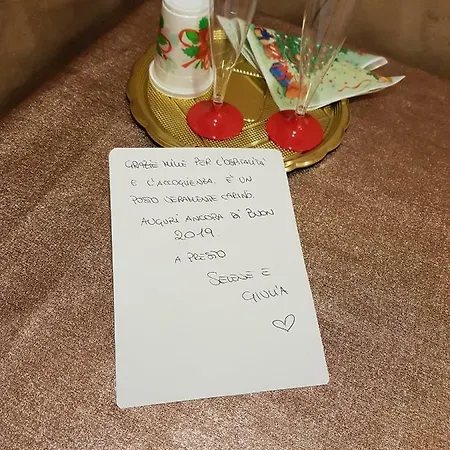 GRAZIE MILLE PER L'OSPITALITÀ
E L'ACCOGLIENZA. E' UN
POSTO VERAMENTE CARINO.
AUGURI ANCORA DI BUON
2019.
A PRESTO
SELENE E
GIULIA